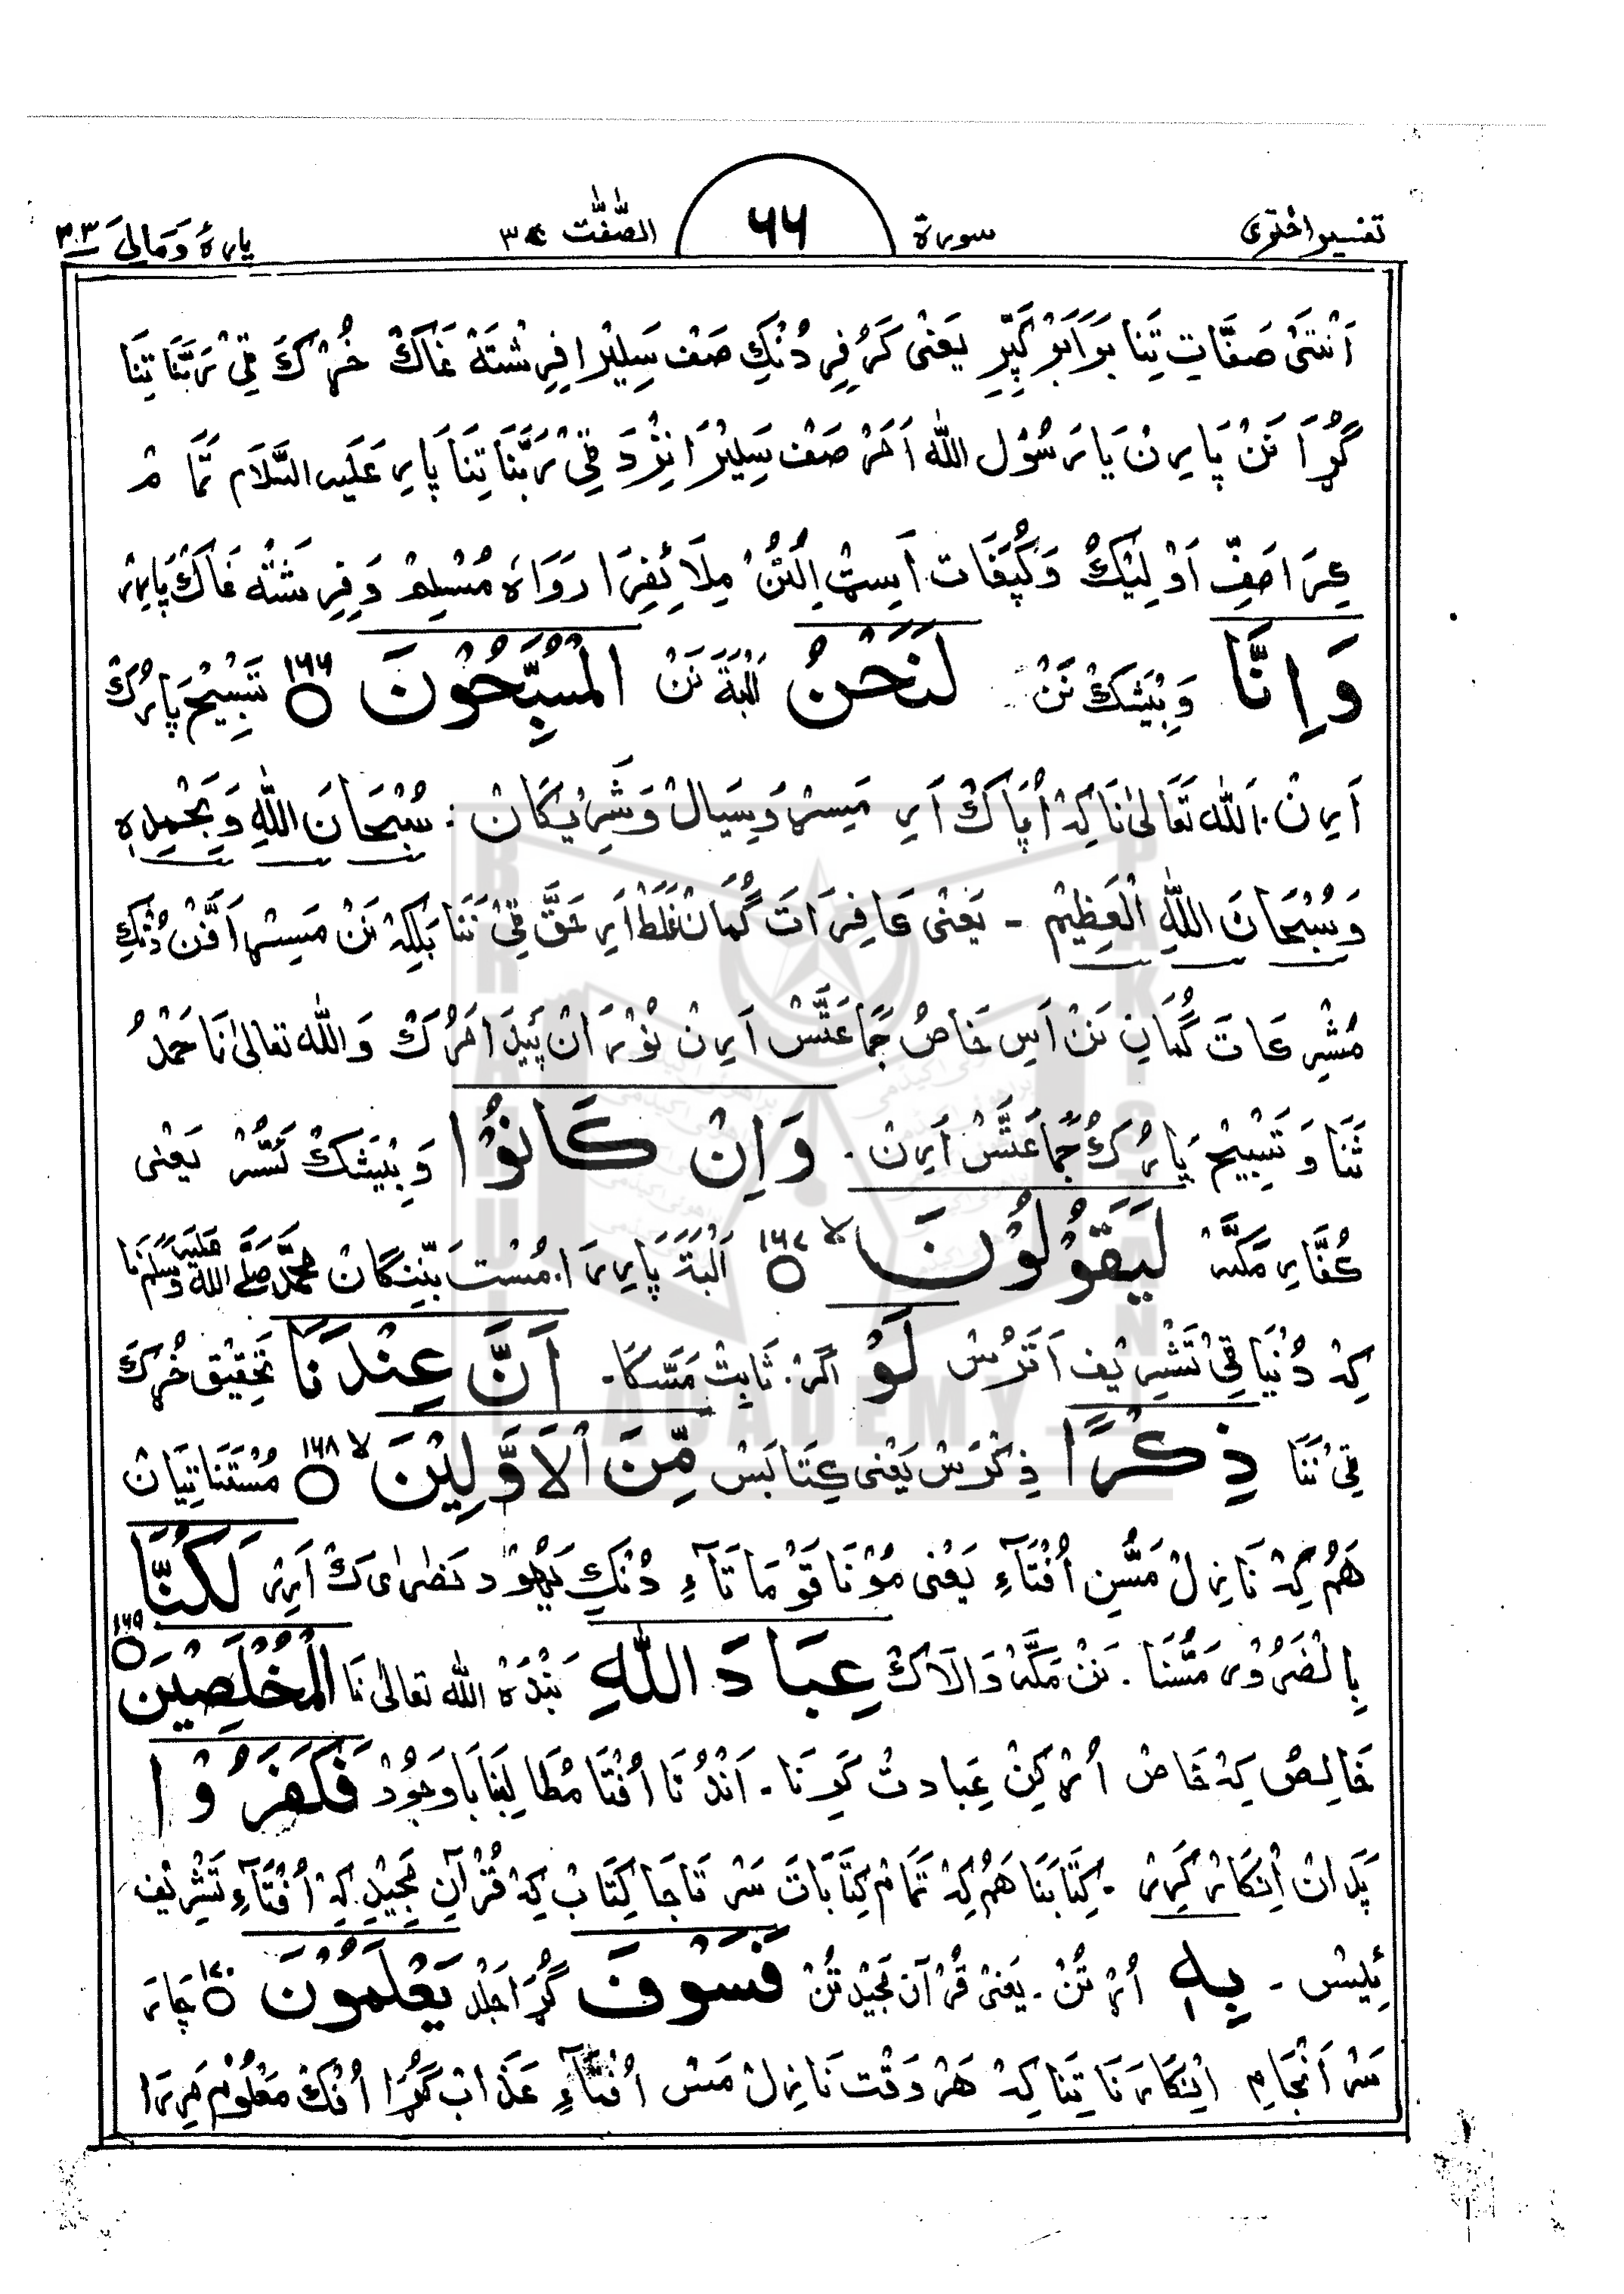 تفسیر اختری سورة ۶۶ الصّٰفّٰت ۳۷ پاره وَمَالِیَ ۲۳
اَنْتَئْ صَفَّاتِ تِنَا بَرَابَرْ كَپِّرِ یَعْنٖى كَرُفِرِ دُنْكِ صَفْ سَلِیْرَا فِرِشْتَهْ غَاكْ خُرْكَ قِیْ رَبَّنَا تِنَا
گُڑَا نَنْ پَارِنْ یَا رَسُوْل اللّٰه اَمَرْ صَفْ سَلِیْرَا نِزْدَ قِیْ رَبَّنَا تِنَا پَارِ عَلَیهِ السَّلَام تَمَّامْ
كِرَا صَفِّ اَوْلِیْكُ وَكُپَّفَات اَسِتْ اِلْتُنْ مِلَائِفِرَا رَوَاهُ مُسْلِمْ وَفِرِشْتَه غَاكْ پَارِرْ
وَاِنَّا وَبِیْشَكْ نَنْ لَنَحْنُ اَلْبَةَ نَنْ الْمُسَبِّحُوْنَ ۱۶۶ تَسْبِیْح پَارُكْ
اَرِنْ. اَللّٰه تَعَالٰى نَا كِهْ اُ پَاكْ اَرِ مَسِرْ وَسِیَالْ وَشَرِیْكَانْ : سُبْحَانَ اللّٰهِ وَبِحَمْدِهٖ
وَسُبْحَانَ اللّٰهِ الْعَظِیْمِ - یَعْنٖى كَافِرَاتَ گُمَانْ غَلَطْ اَرِ حَقَّ قِیْ نَنَا بَلْكِهْ نَنْ مَسِرْ اَفَّنْ دُنْكِ
مُشْرِكَاتَ گُمَانِ نَنْ اَسِ خَاصُ جَمَاعَتَّسْ اَرِنْ نُوْرَانْ پَیْدَا مَرُكْ وَاللّٰه تعالٰى نَا حَمْدُ
ثَنَا وَ تَسْبِیْح پَارُكْ جَمَاعَتَّسْ اَرِنْ. وَاِنْ كَانُوْا وَبِیْشَكْ اَسُّرْ یَعْنٖى
كُفَّارِ مَكَّهْ لَیَقُوْلُوْنَ لا ۱۶۷ اَلْبَةَ پَارِرَا. مُسْت بَنِّنْگَانْ مُحَمَّدْ صَلَّى اللّٰه عَلَیْهِ وَسَلَّم نَا
كِهْ دُنْیَا قِیْ تَشْرِیْف اَتَرُسْ لَوْ اَگَرْ. ثَابِتْ مَسَّكَا. اَنَّ عِنْدَنَا تَحْقِیْق خُرْكَ
قِیْ نَنَا ذِكْرًا ذِكْرَسْ یَعْنٖى كِتَابَسْ مِّنَ الْاَوَّلِیْنَ لا ۱۶۸ مُسْتَنَا تِیَانْ
هَمْ كِهْ نَازِلْ مَسُّنِ اُفْتَآءِ یَعْنٖى مُوْنَا قَوْمَاتَآءِ دُنْكِ یَهُوْد نَصَارٰى كْ اَرِرْ لَكُنَّا
بِالضَّرُوْر مَسُّنَا. نَنْ مَكَّهْ وَالَاكْ عِبَادَ اللّٰهِ بَنْدَهْ اللّٰه تعالٰى نَا الْمُخْلَصِیْنَ ۱۶۹
خَالِصُ كِهْ خَاصْ اُرْكِنْ عِبَادتْ كَرِنَا. اَنْدُنَا اُفْتَا مُطَالِبَنَا بَاوَجُوْد فَكَفَرُوْا
پَدَانْ اِنْكَارْ كَرِرْ. كِتَابَنَا هَمْ كِهْ تَمَامْ كِتَابَاتَ سَرْتَاجَا كِتَابْ كِهْ قُرْآنِ مَجِیْدِ كِهْ اُفْتَآءِ تَشْرِیْف
ئِلِیْسْ - بِهٖ اُرْتُنْ. یَعْنٖى قُرْآن مَجِیْد تُنْ فَسَوْفَ گُڑَا جَلْد یَعْلَمُوْنَ ۱۷۰ چَارَ
سَرْ اَنْجَامِ اِنْكَارَنَا تِنَا كِهْ هَرْ وَقْت نَازِلْ مَسْ اُفْتَآءِ عَذَابْ گُڑَا اُفْكْ مَعْلُوْم مَرِرَا
BRAHUI ACADEMY PAKISTAN